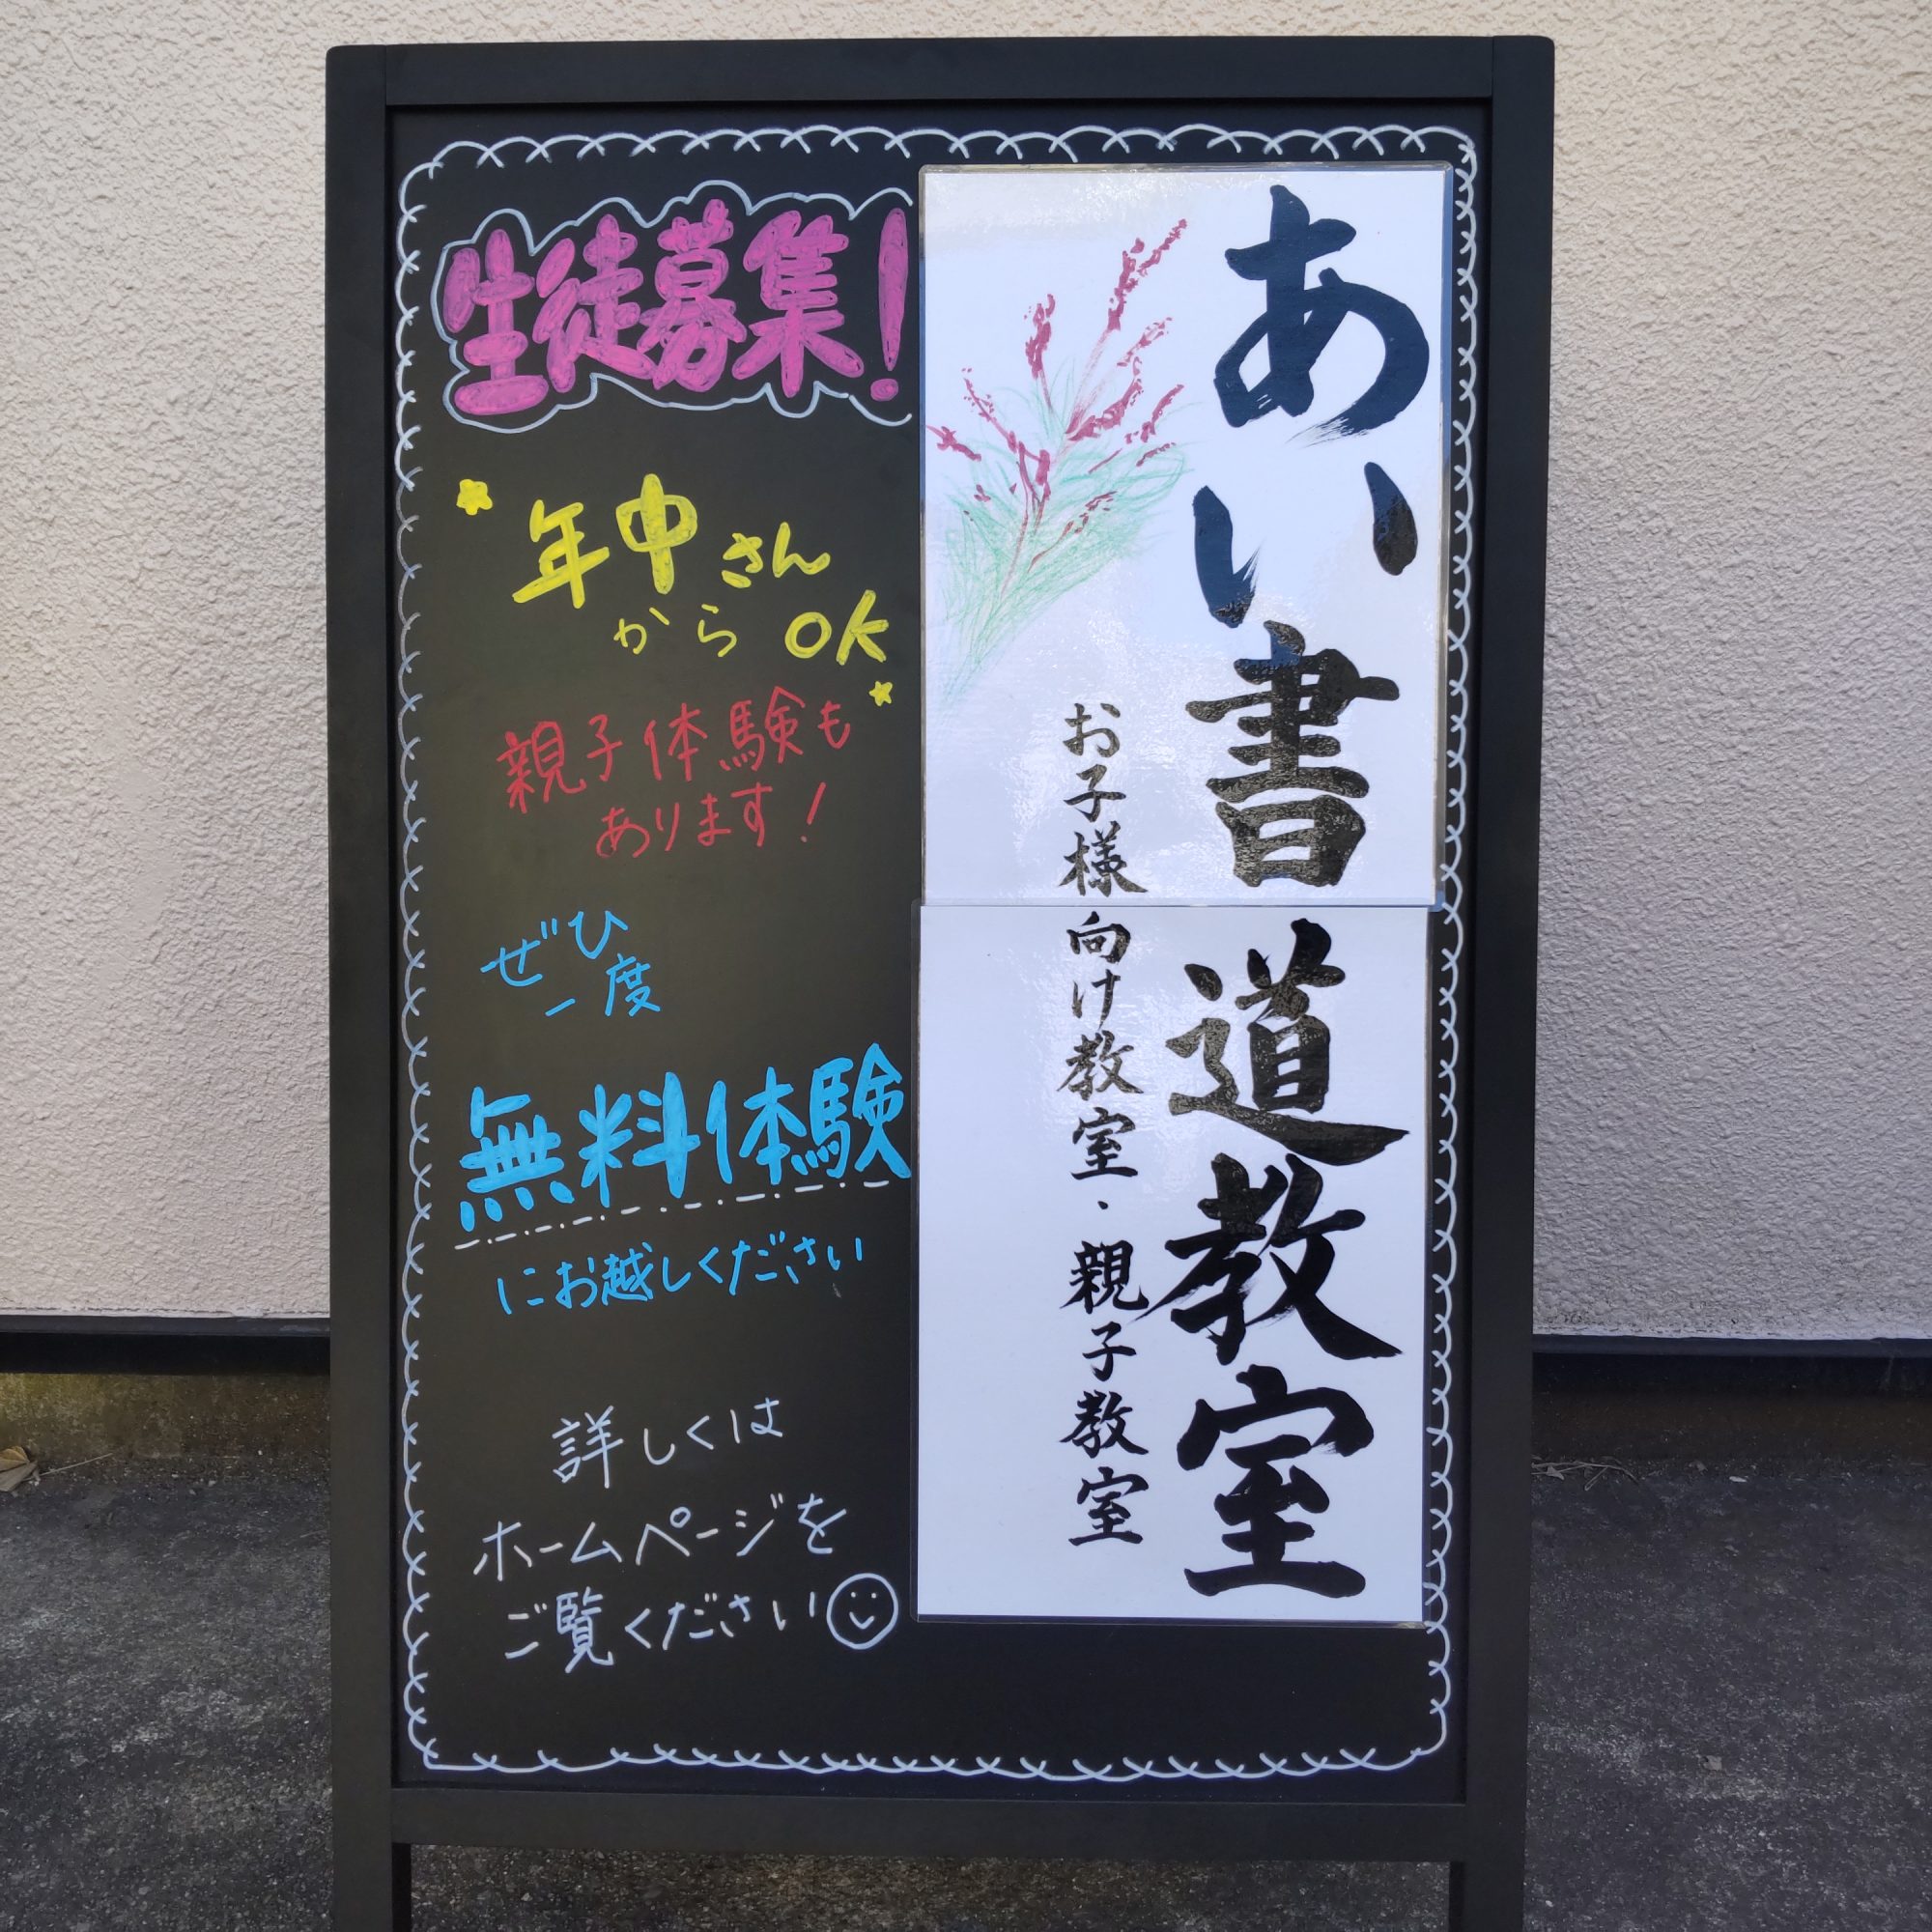 あい書道教室
お子様向け教室・親子教室
生徒募集!
年中さん
から OK
親子体験も
あります!
ぜひ
一度
無料体験
にお越しください
詳しくは
ホームページを
ご覧ください